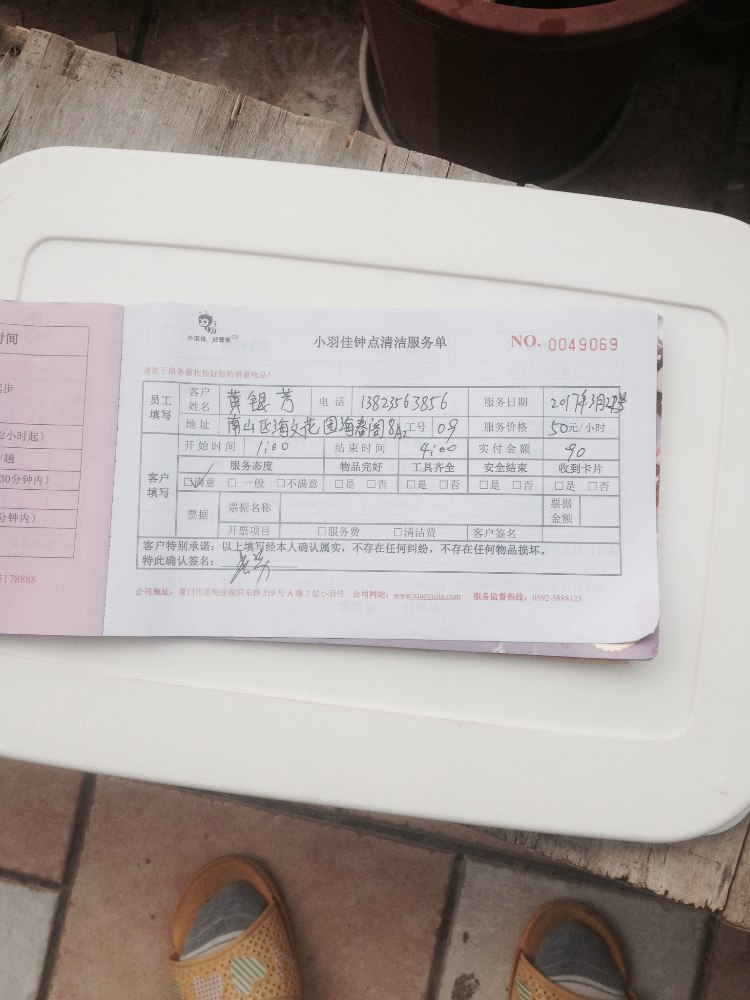 时间
2小时起）
/趟
30分钟内）
分钟内）
5178888
小羽佳 好管家
小羽佳钟点清洁服务单 NO. 0049069
请您于服务前收拾好您的贵重物品！
员工填写 客户姓名 黄银芳 电话 13823563856 服务日期 2017年3月
地址 南山区海文花园海春阁8A2 工号 09 服务价格 50元/小时
客户填写 开始时间 1:00 结束时间 4:00 实付金额 90
服务态度 物品完好 工具齐全 安全结束 收到卡片
☑满意 □一般 □不满意 □是 □否 □是 □否 □是 □否 □是 □否
票据 票据名称 票据金额
开票项目 □服务费 □清洁费 客户签名
客户特别承诺：以上填写经本人确认属实，不存在任何纠纷，不存在任何物品损坏。
特此确认签名：
公司地址：厦门市思明区湖滨东路319号A幢2层小羽佳 公司网站：www.xiaoyujia.com 服务监督热线：0592-5888123